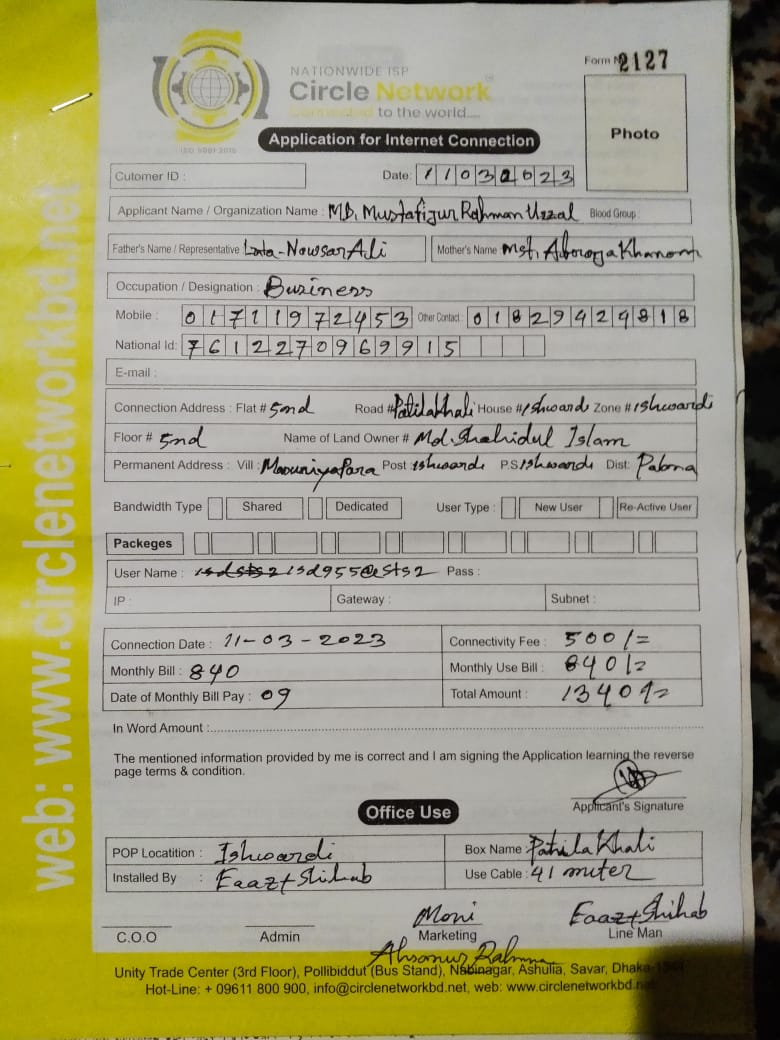 NATIONWIDE ISP
Circle Network
Connected to the world....
ISO 9001:2015
Form № 2127
Photo
Application for Internet Connection
Cutomer ID :
Date: 11032023
Applicant Name / Organization Name : MD. Mustafijur Rahman Uzzal Blood Group :
Father's Name / Representative Late-Nowsar Ali Mother's Name Mst. Khanom
Occupation / Designation : Business
Mobile : 01711972453 Other Contact : 01829429818
National Id: 7612270969915
E-mail :
Connection Address : Flat # 5nd Road # Patilakhali House # Ishwardi Zone # Ishwardi
Floor # 5nd Name of Land Owner # Md. Shahidul Islam
Permanent Address : Vill : MoouniyaPara Post : Ishwardi P.S Ishwardi Dist: Pabna
Bandwidth Type Shared Dedicated User Type : New User Re-Active User
Packeges
User Name : isd955@sts2 Pass :
IP : Gateway : Subnet :
Connection Date : 11-03-2023 Connectivity Fee : 500/=
Monthly Bill : 840 Monthly Use Bill : 840/=
Date of Monthly Bill Pay : 09 Total Amount : 1340/=
In Word Amount :
The mentioned information provided by me is correct and I am signing the Application learning the reverse
page terms & condition.
Applicant's Signature
Office Use
POP Locatition : Ishwardi Box Name : Patila Khali
Installed By : Eaaz+Shihab Use Cable : 41 miter
Moni Eaaz+Shihab
C.O.O Admin Marketing Line Man
Ahsanur Rahman
Unity Trade Center (3rd Floor), Pollibiddut (Bus Stand), Nabinagar, Ashulia, Savar, Dhaka-1344
Hot-Line: + 09611 800 900, info@circlenetworkbd.net, web: www.circlenetworkbd.net
web: www.circlenetworkbd.net